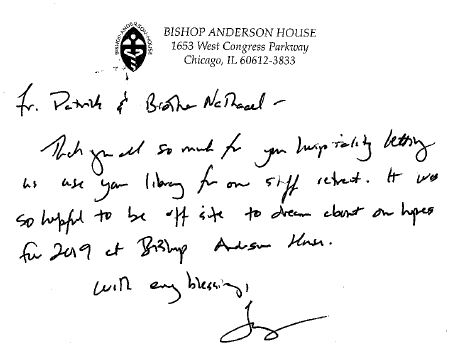 BISHOP ANDERSON HOUSE
BISHOP ANDERSON HOUSE
1653 West Congress Parkway
Chicago, IL 60612-3833
Fr. Patrick & Brother Nathanael -
Thank you all so much for your hospitality letting
us use your library for our staff retreat. It was
so helpful to be off site to dream about our hopes
for 2019 at Bishop Anderson House.
with every blessing,